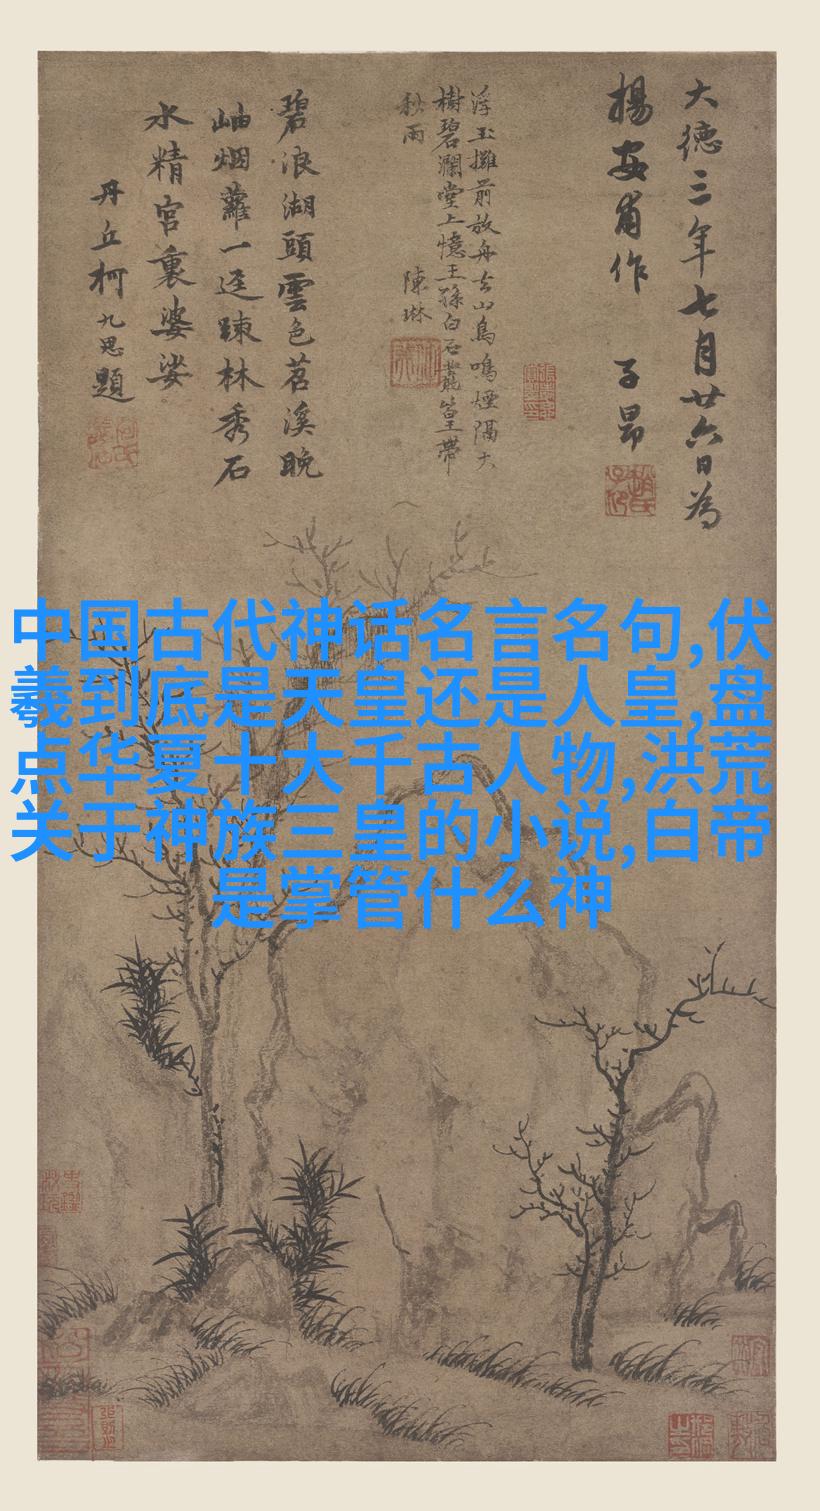 大德三年七月廿六日為
楊安甫作 子昂
浮玉攤前放舟去山鳥鳴煙隔大
樹碧瀾堂上憶王孫白石叢篁帶
秋雨 陳琳
碧浪湖頭雲色苕溪晚
岫烟蘿一逕踈林秀石
水精宮裏婆娑
丹丘柯九思題
中国古代神话名言名句,伏
羲到底是天皇还是人皇,盘
点华夏十大千古人物,洪荒
关于神族三皇的小说,白帝
是掌管什么神